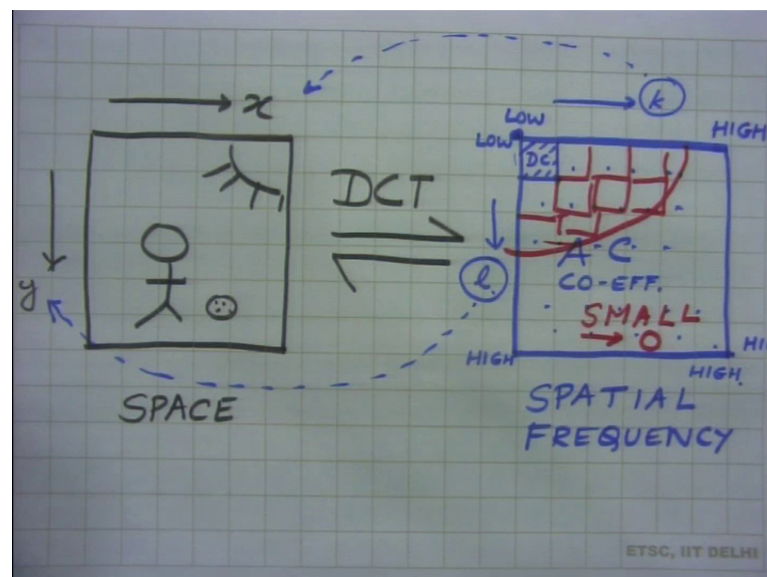 x
y
SPACE
DCT
k
LOW
LOW
HIGH
DC
l
A-C
CO-EFF.
SMALL
→ 0
HIGH
HI
HIGH
SPATIAL
FREQUENCY
ETSC, IIT DELHI